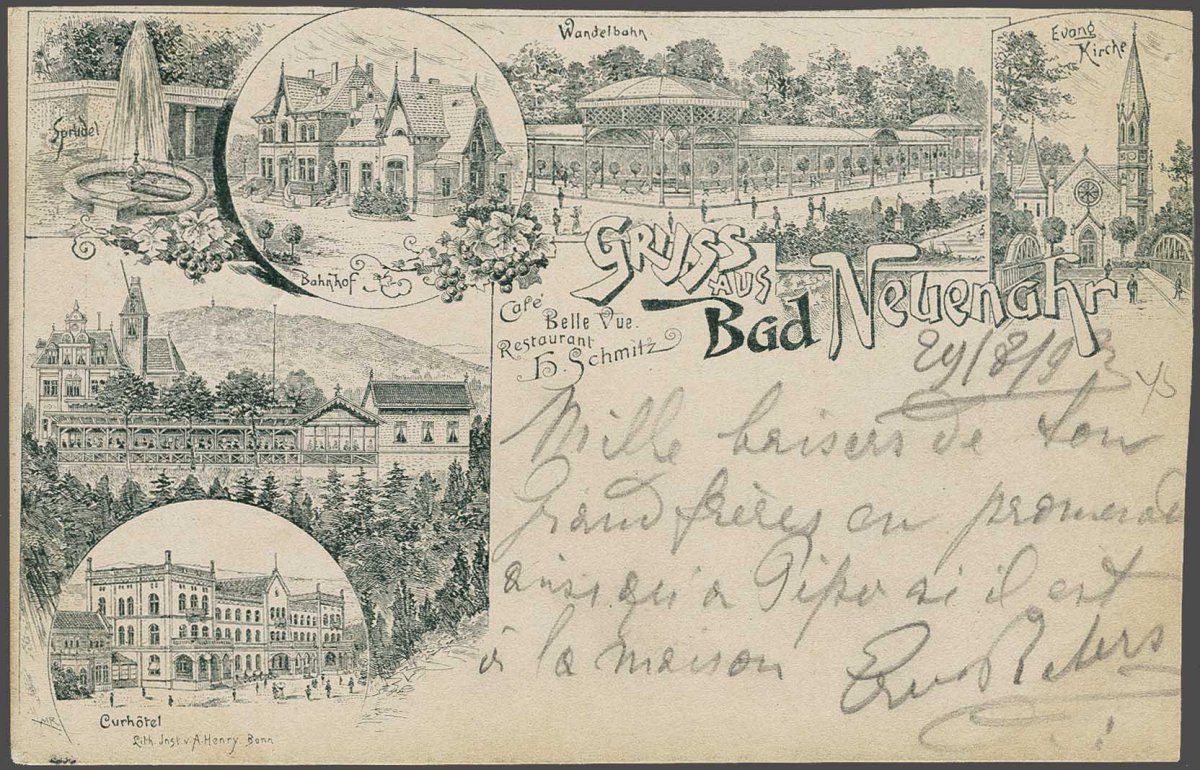 Sprudel
Bahnhof
Wandelbahn
Evang
Kirche
Gruss
aus
Bad Neuenahr
Café
Belle Vue.
Restaurant
H. Schmitz
Mille baisers de ton
Grand frères en promenade
ainsi qu'a Pipo si il est
à la maison
Curhôtel
Lith. Inst. v. A. Henry. Bonn